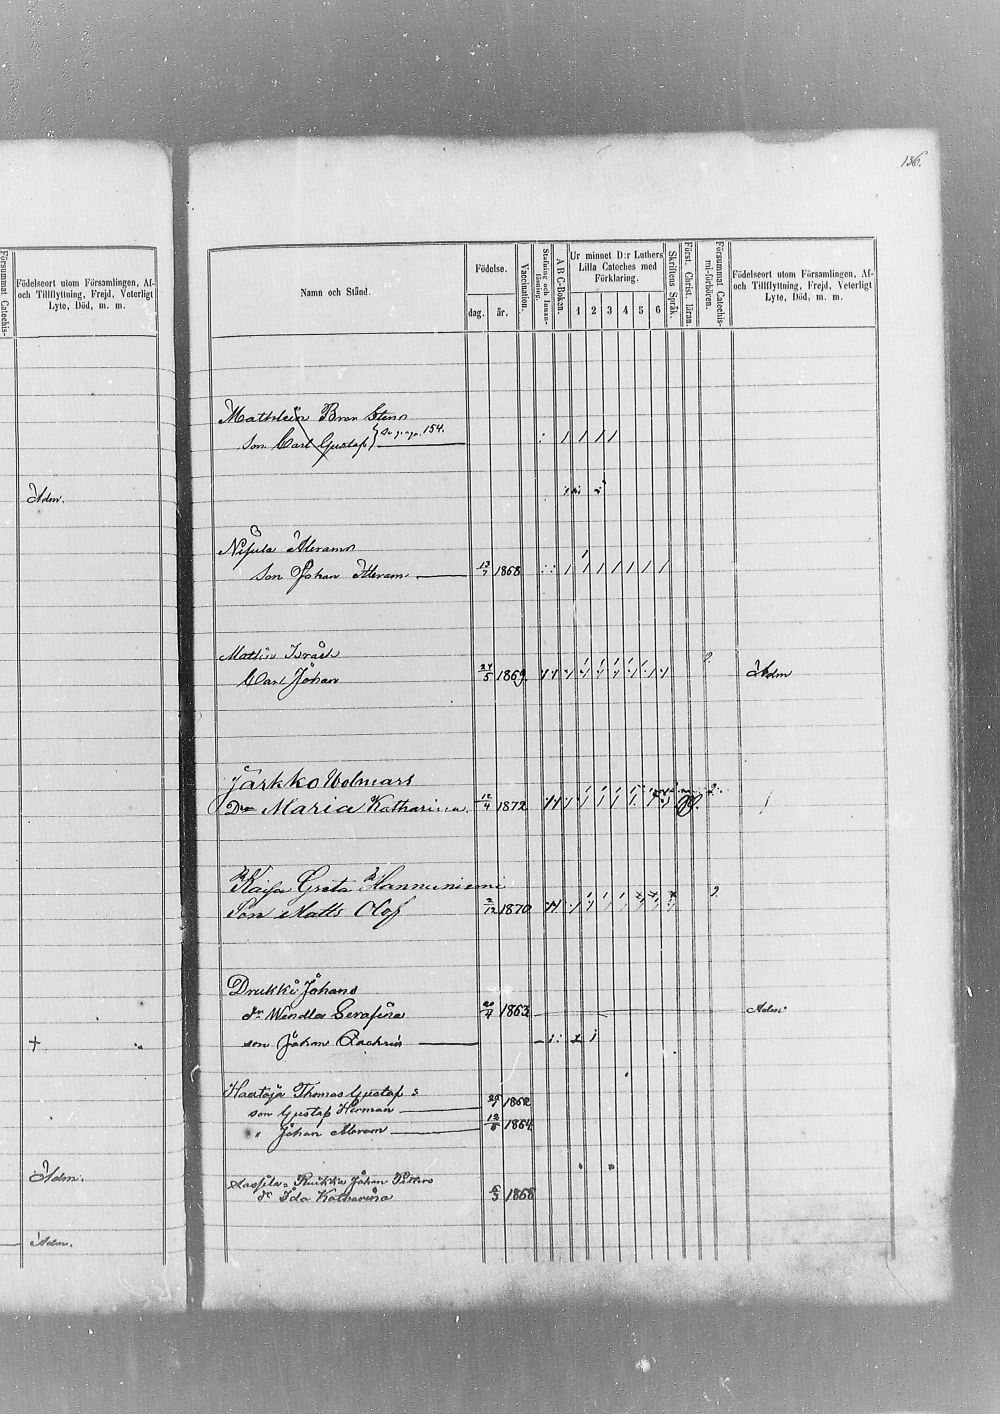 136.
Försummat Catechis-
Födelseort utom Församlingen, Af-
och Tillflyttning, Frejd, Veterligt
Lyte, Död, m. m.
Adm.
+
Adm.
Adm.
Namn och Stånd.
Födelse.
dag.
år.
Vaccination.
Stafning och Innan-
läsning.
A B C-Boken.
Ur minnet D:r Luthers
Lilla Cateches med
Förklaring.
1 2 3 4 5 6
Skriftens Språk.
Först. Christ. läran.
Försummat Catechis-
mi-förhören.
Födelseort utom Församlingen, Af-
och Tillflyttning, Frejd, Veterligt
Lyte, Död, m. m.
Stens
son Carl Gustaf 154.
Abrams
Son Johan Abram 13/7 1868
Israels
Carl Johan 24/5 1869 Adm
Järkko Wolmars
Dr Maria Katharina 12/4 1872
Kaisa Greta Hannuniemi
Son Matts Olof 2/12 1870
Johans
dr Wendla Serafina 20/4 1863 Adm
son Johan Zachris
Haataja Thomas Gustafs
son Gustaf Herman 1862
" Johan Abram 12/6 1864
Johan Petters
dr Ida Katharina 6/3 1868